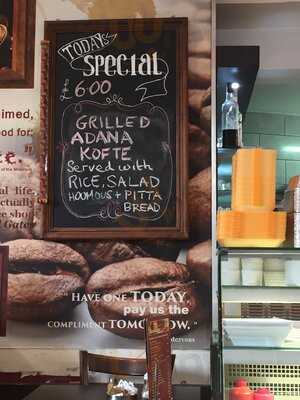 TODAYS
SPECIAL
6.00
GRILLED
ADANA
KOFTE
SERVED WITH
RICE, SALAD
HOUMOUS + PITTA
BREAD
imed,
ood for:
e."
al life,
ctually
e sho
Gates
" HAVE ONE TODAY,
pay us the
COMPLIMENT TOMORROW. "